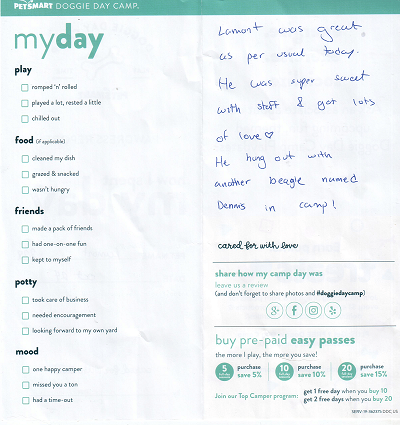 PETSMART DOGGIE DAY CAMP.
myday
play
romped 'n' rolled
played a lot, rested a little
chilled out
food (if applicable)
cleaned my dish
grazed & snacked
wasn't hungry
friends
made a pack of friends
had one-on-one fun
kept to myself
potty
took care of business
needed encouragement
looking forward to my own yard
mood
one happy camper
missed you a ton
had a time-out
Lamont was great
as per usual today.
He was super sweet
with staff & got lots
of love ♡
He hung out with
another beagle named
Dennis in camp!
cared for with love
share how my camp day was
leave us a review
(and don't forget to share photos and #doggiedaycamp)
buy pre-paid easy passes
the more I play, the more you save!
5 purchase save 5%
10 purchase save 10%
20 purchase save 15%
Join our Top Camper program:
get 1 free day when you buy 10
get 2 free days when you buy 20